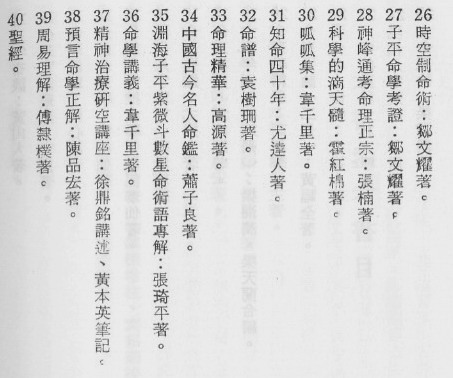 26 時空制命術：鄒文耀著。
27 子平命學考證：鄒文耀著。
28 神峰通考命理正宗：張楠著。
29 科學的滴天髓：霍紅棉著。
30 呱呱集：韋千里著。
31 知命四十年：尤達人著。
32 命譜：袁樹珊著。
33 命理精華：高源著。
34 中國古今名人命鑑：蕭子良著。
35 淵海子平紫微斗數星命術語專解：張琦平著。
36 命學講義：韋千里著。
37 精神治療研究講座：徐鼎銘講述、黃本英筆記。
38 預言命學正解：陳品宏著。
39 周易理解：傅隸樸著。
40 聖經。